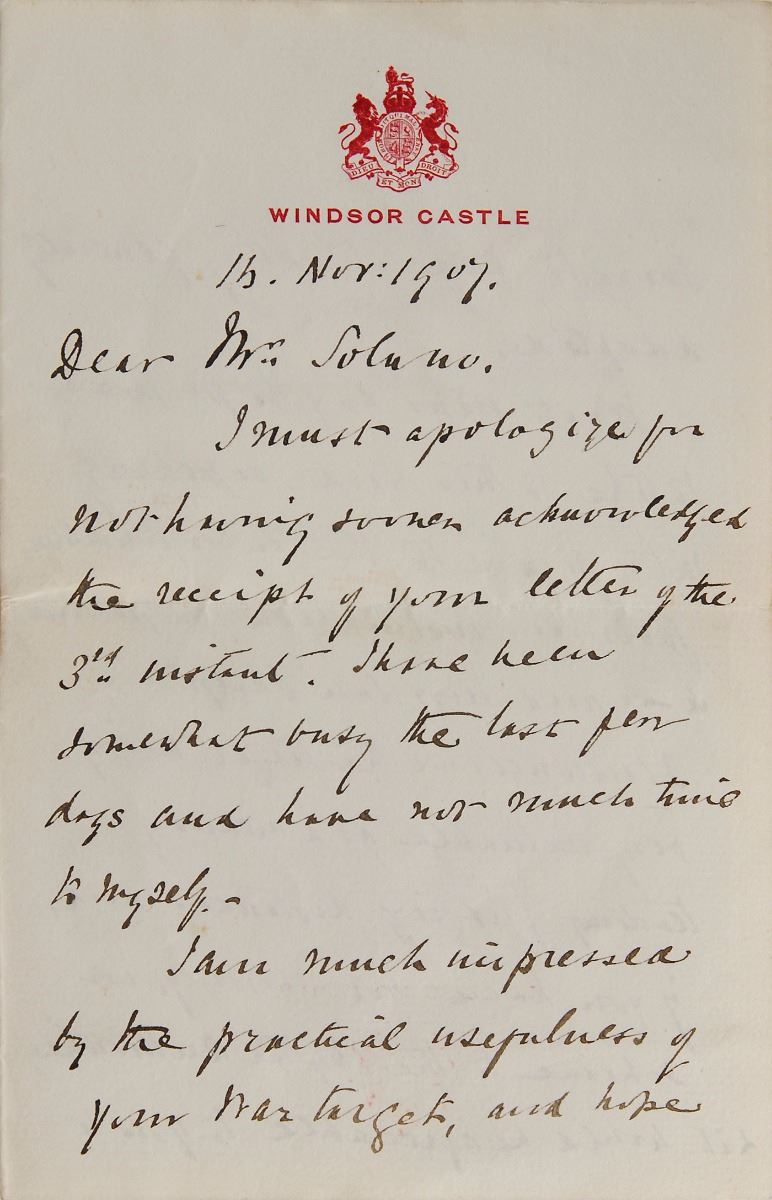 DIEU ET MON DROIT
WINDSOR CASTLE
Nov: 1907.
Dear Mrs. Solano.
I must apologize for
not having sooner acknowledged
the receipt of your letter of the
3rd instant. I have been
somewhat busy the last few
days and have not much time
to myself. -
I am much impressed
by the practical usefulness of
your War target, and hope